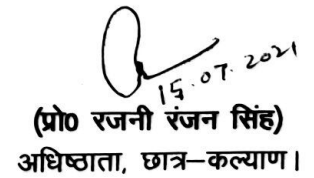 15.07.2021
(प्रो0 रजनी रंजन सिंह)
अधिष्ठाता, छात्र–कल्याण।